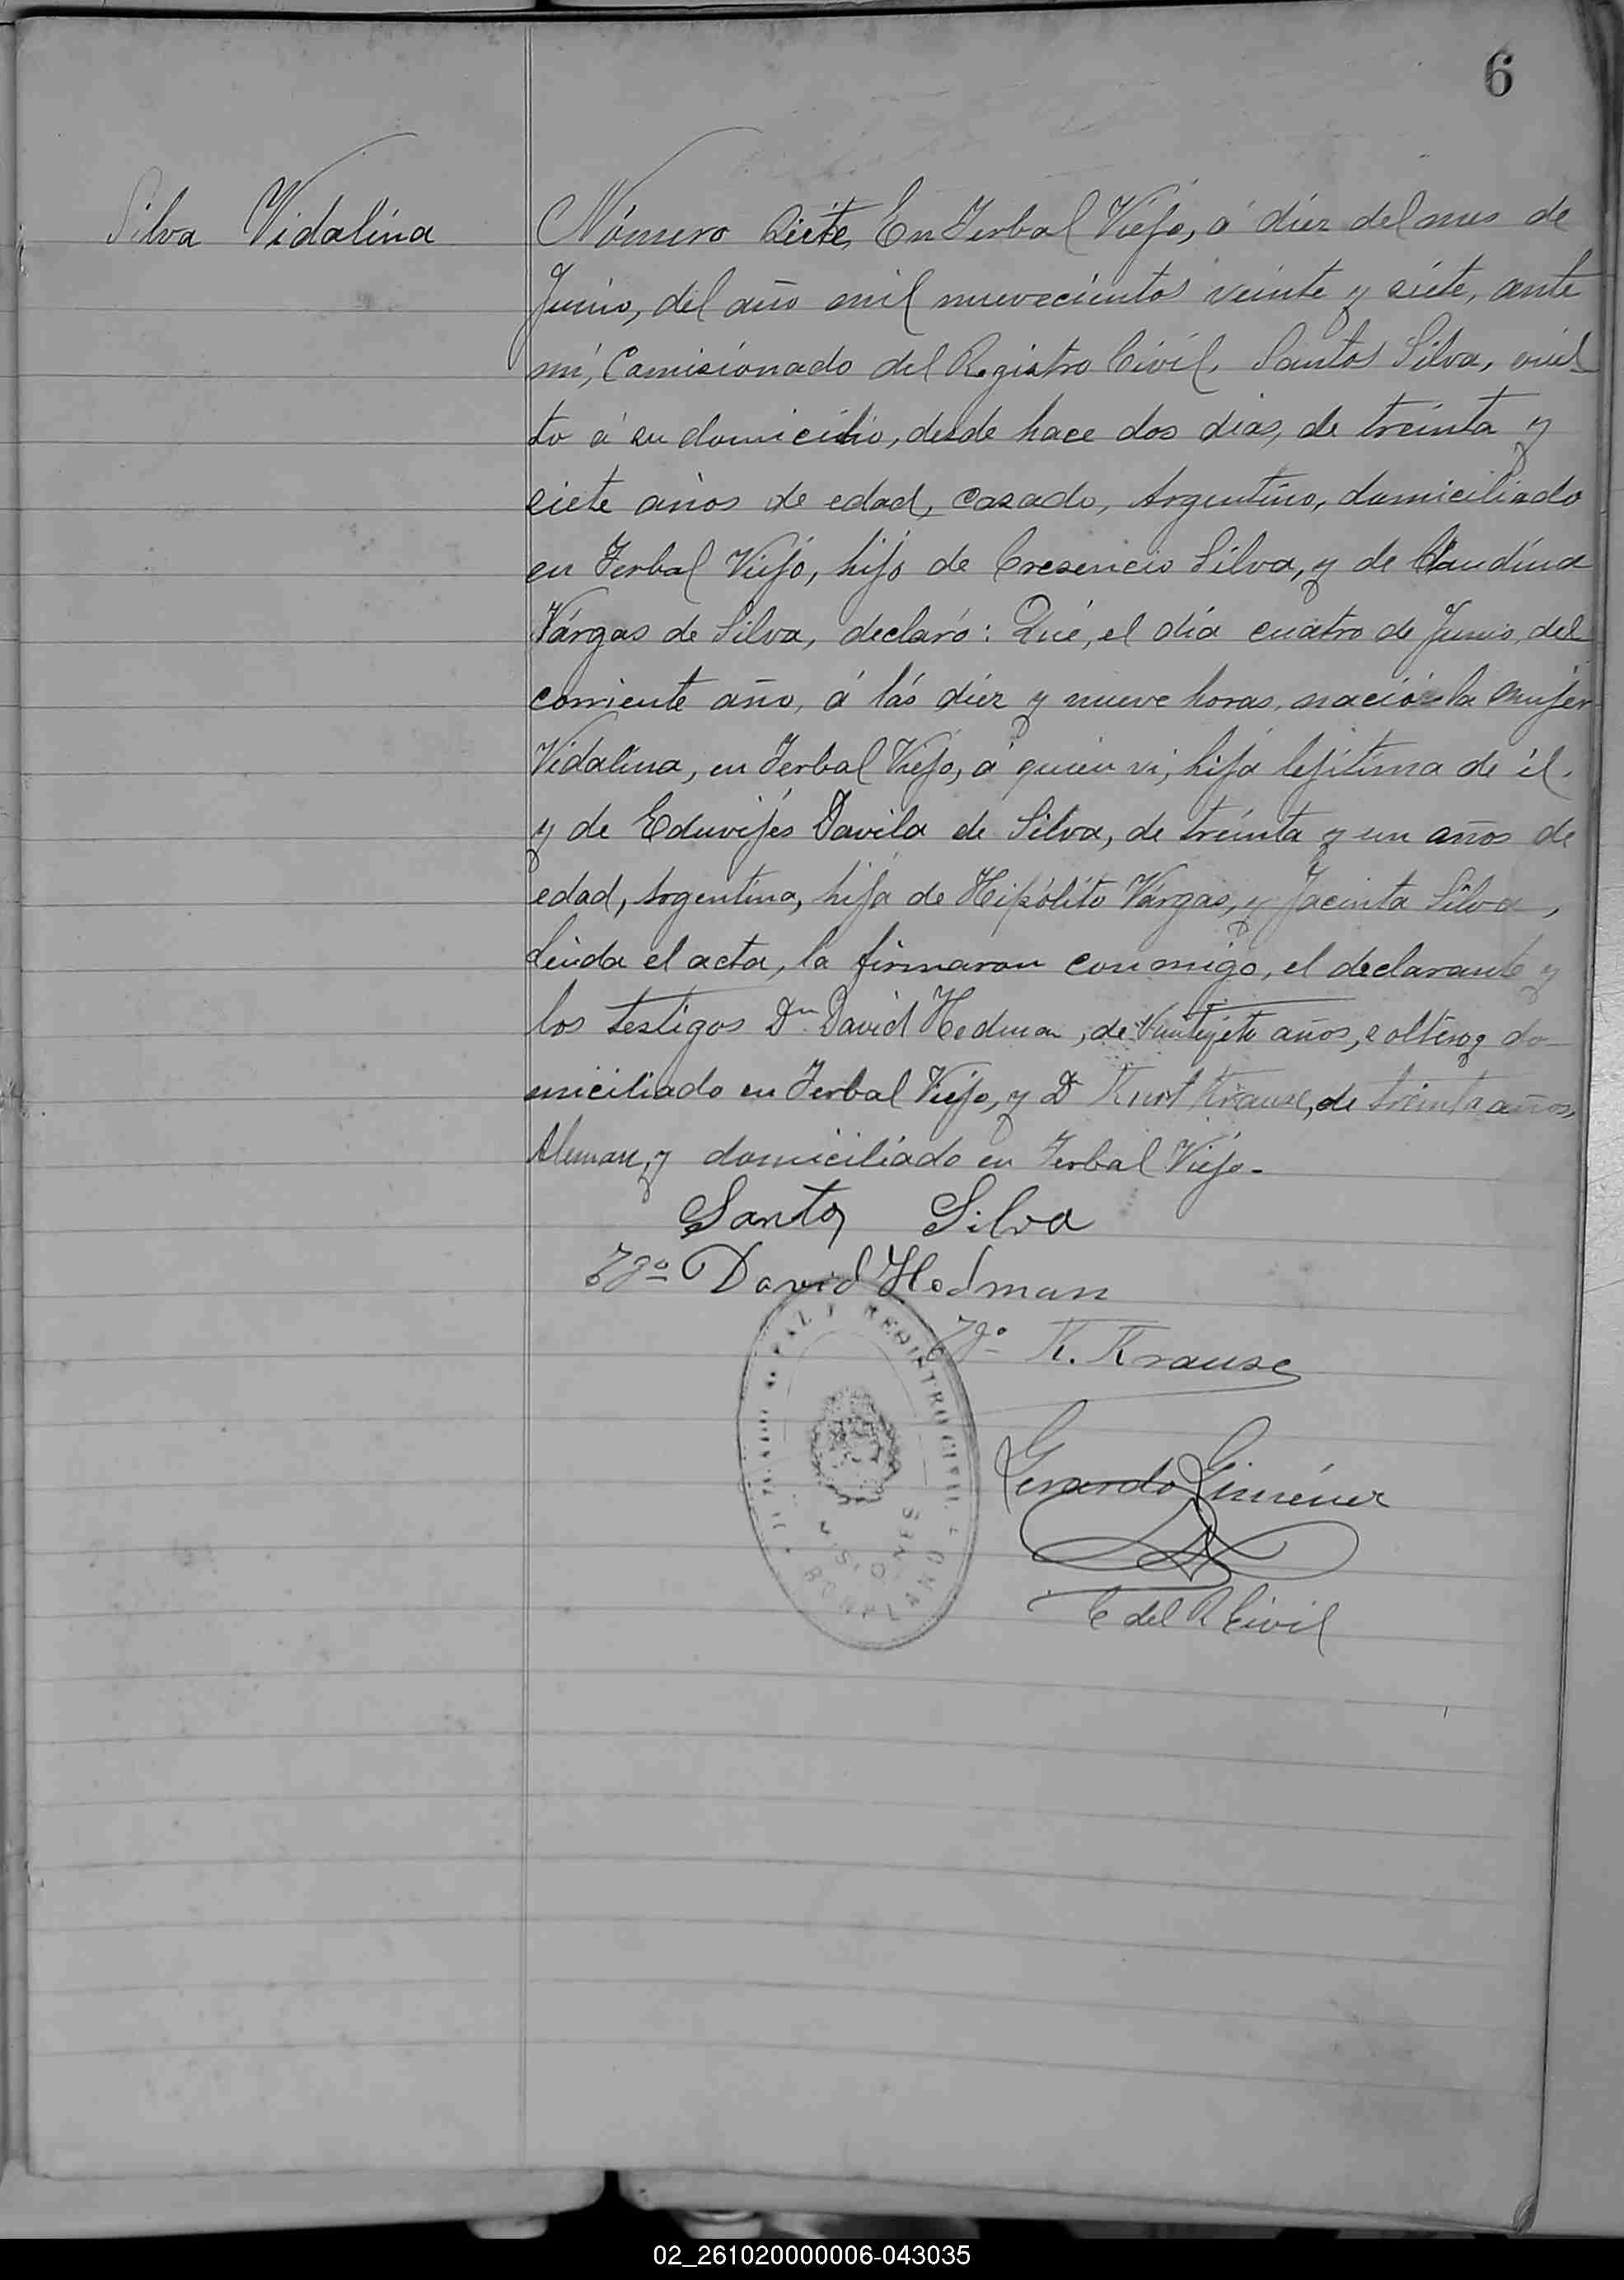 6
Silva Vidalina
Número Siete, En Yerbal Viejo, á diez del mes de
Junio, del año mil nuevecientos veinte y siete, ante
mí, Comisionado del Registro Civil, Santos Silva, vuel-
to á su domicilio, desde hace dos dias, de treinta y
siete años de edad, casado, Argentino, domiciliado
en Yerbal Viejo, hijo de Cresencio Silva, y de Claudina
Várgas de Silva, declaró: Qué, el día cuatro de Junio, del
corriente año, á lás diez y nueve horas, nació la mujer
Vidalina, en Yerbal Viejo, á quien vi, hija lejítima de él,
y de Eduvijés Davila de Silva, de treinta y un años de
edad, Argentina, hija de Hipólito Várgas, y Jacinta Silva,
Leida el acta, la firmaron conmigo, el declarante y
los testigos Dn David Hedman, de años, soltero y do-
miciliado en Yerbal Viejo, y D Kurt Krause, de treinta años,
Aleman, y domiciliado en Yerbal Viejo.
Santos Silva
Tgo David Hedman
Tgo K. Krause
PAZ Y REGISTRO CIVIL
BONPLAND
MISIONES
Gerardo Giménez
C del R Civil
02_261020000006-043035